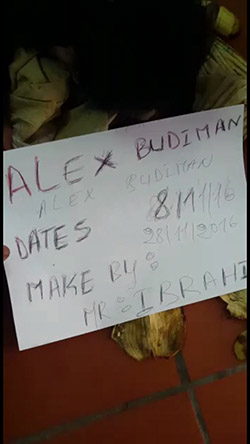 ALEX BUDIMAN
ALEX BUDIMAN
DATES 8/11/16
28/11/2016
MAKE BY:
MR:IBRAHI